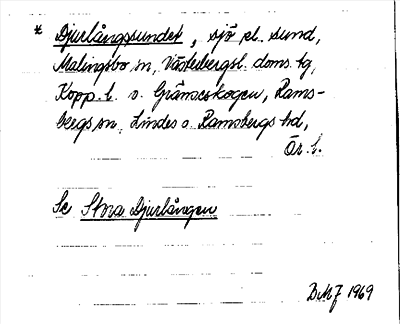 * Djurlångssundet, sjö el. sund,
Malingsbo sn, Västerbergsl. doms. tg,
Kopp. l. o. Grämsskogen, Rams-
bergs sn, Lindes o. Ramsbergs hd,
Ör. l.
Se Stora Djurlången
1969